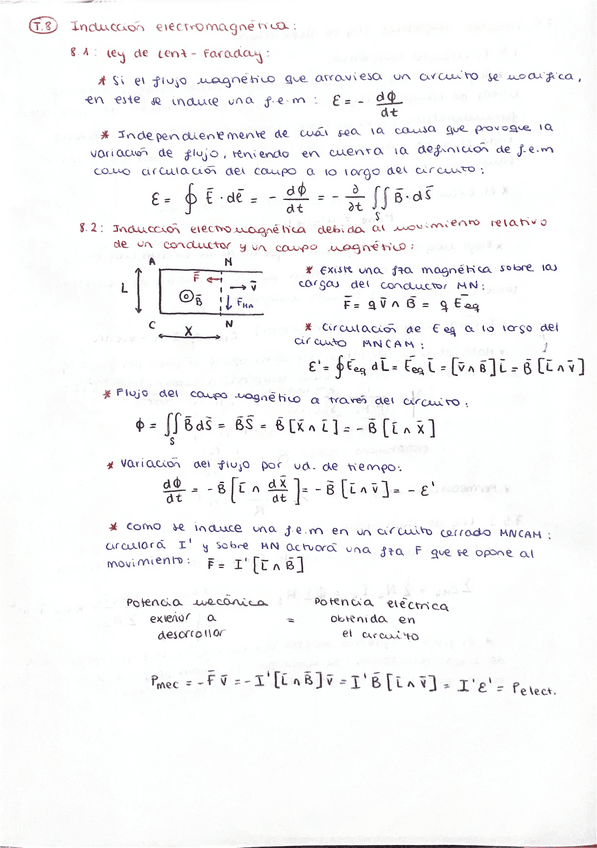 T.8 Inducción electromagnética:
8.1: Ley de Lent-Faraday:
* Si el flujo magnético que atraviesa un circuito se modifica,
en este se induce una f.e.m : Ɛ = - dϕ/dt
* Independientemente de cuál sea la causa que provoque la
variación de flujo, teniendo en cuenta la definición de f.e.m
como circulación del campo a lo largo del circuito:
Ɛ = ∮ Ē · dē = - dϕ/dt = - ∂/∂t ∬_S B̄ · dS̄
8.2: Inducción electromagnética debida al movimiento relativo
de un conductor y un campo magnético:
A N
L F̄ v̄
B̄ F_MA
C N
X
* Existe una fza magnética sobre las
cargas del conductor MN:
F̄ = q v̄ ∧ B̄ = q Ē_eq
* Circulación de Eeq a lo largo del
circuito MNCAM:
Ɛ' = ∮ Ē_eq dL̄ = Ē_eq L̄ = [v̄ ∧ B̄] L̄ = B̄ [L̄ ∧ v̄]
* Flujo del campo magnético a través del circuito:
ϕ = ∬_S B̄ dS̄ = B̄S̄ = B̄ [X̄ ∧ L̄] = - B̄ [L̄ ∧ X̄]
* Variación del flujo por ud. de tiempo:
dϕ/dt = - B̄ [L̄ ∧ dX̄/dt] = - B̄ [L̄ ∧ v̄] = - Ɛ'
* Como se induce una f.e.m en un circuito cerrado MNCAM:
circulará I' y sobre MN actuará una fza F que se opone al
movimiento: F̄ = I' [L̄ ∧ B̄]
Potencia mecánica Potencia eléctrica
exterior a = obtenida en
desorrollar el circuito
Pmec = - F̄ v̄ = - I' [L̄ ∧ B̄] v̄ = I' B̄ [L̄ ∧ v̄] = I' Ɛ' = Pelect.